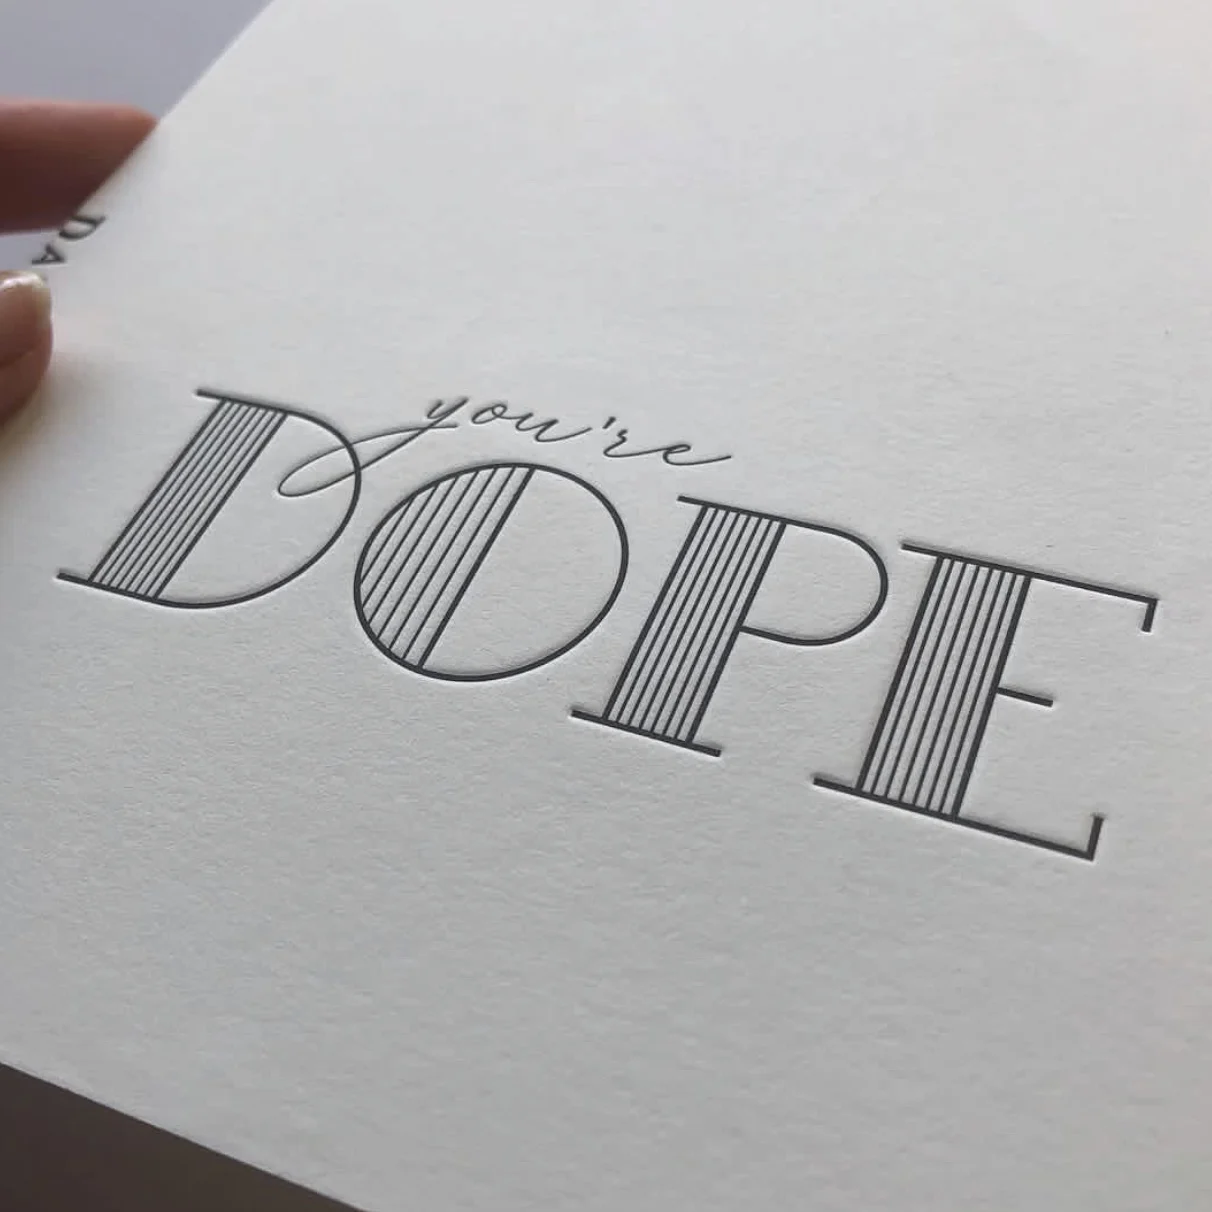 you're
DOPE